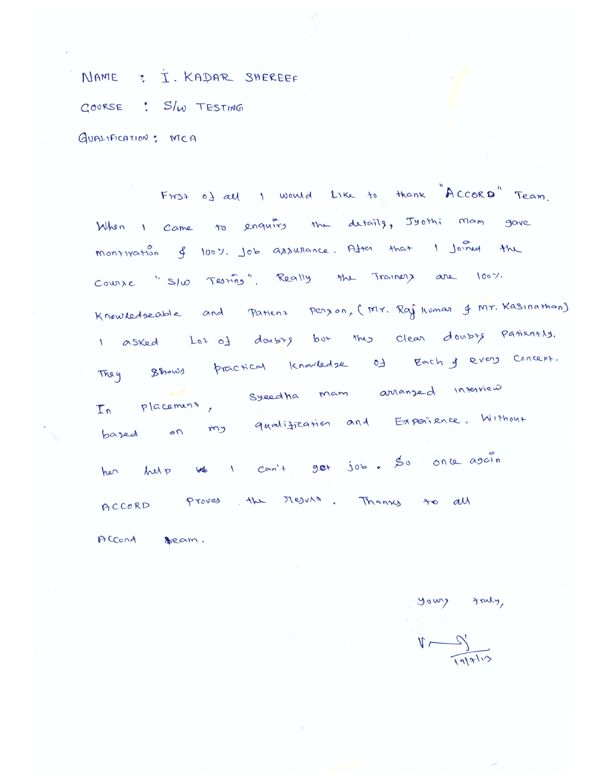 NAME : I. KADAR SHEREEF
COURSE : S/W TESTING
QUALIFICATION : MCA
First of all I would Like to thank "ACCORD" Team.
When I came to enquiry the details, Jyothi mam gave
montivation & 100% Job assurance. After that I Joined the
Course "S/W Testing". Really the Trainers are 100%
Knowledgeable and Patient Person, (Mr. Raj Kumar & Mr. Kasinathan)
I asked Lot of doubts but they clear doubts Patiently.
They shows practical knowledge of Each & every Concept.
In placement, Syeedha mam arranged interview
based on my qualification and Experience. Without
her help I can't get job. So once again
ACCORD Proves the result. Thanks to all
Accord team.
Yours truly,
19/7/13